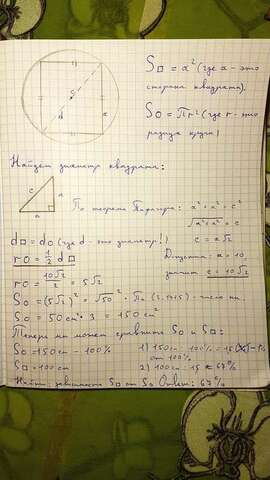 S□ = a² (где a - это
стороны квадрата).
SО = Пr² (где r - это
радиус круга)
Найдем диаметр квадрата:
По теореме Пифагора: a² + a² = c²
√a² + a² = c
c = a√2
d□ = dО (где d - это диаметр!)
rО = 1/2 d□
Допустим: a = 10,
значит c = 10√2
rО = 10√2/2 = 5√2
SО = (5√2)² = √50² · Пи число пи.
SО = 50 см² · 3 = 150 см²
Теперь мы можем сравнить SО и S□:
SО = 150 см - 100%
S□ = 100 см
1) 150 см : 100% = 1,5
от 100%
2) 100 см : 1,5 ≈ 67%
S□ от SО Ответ: 67%